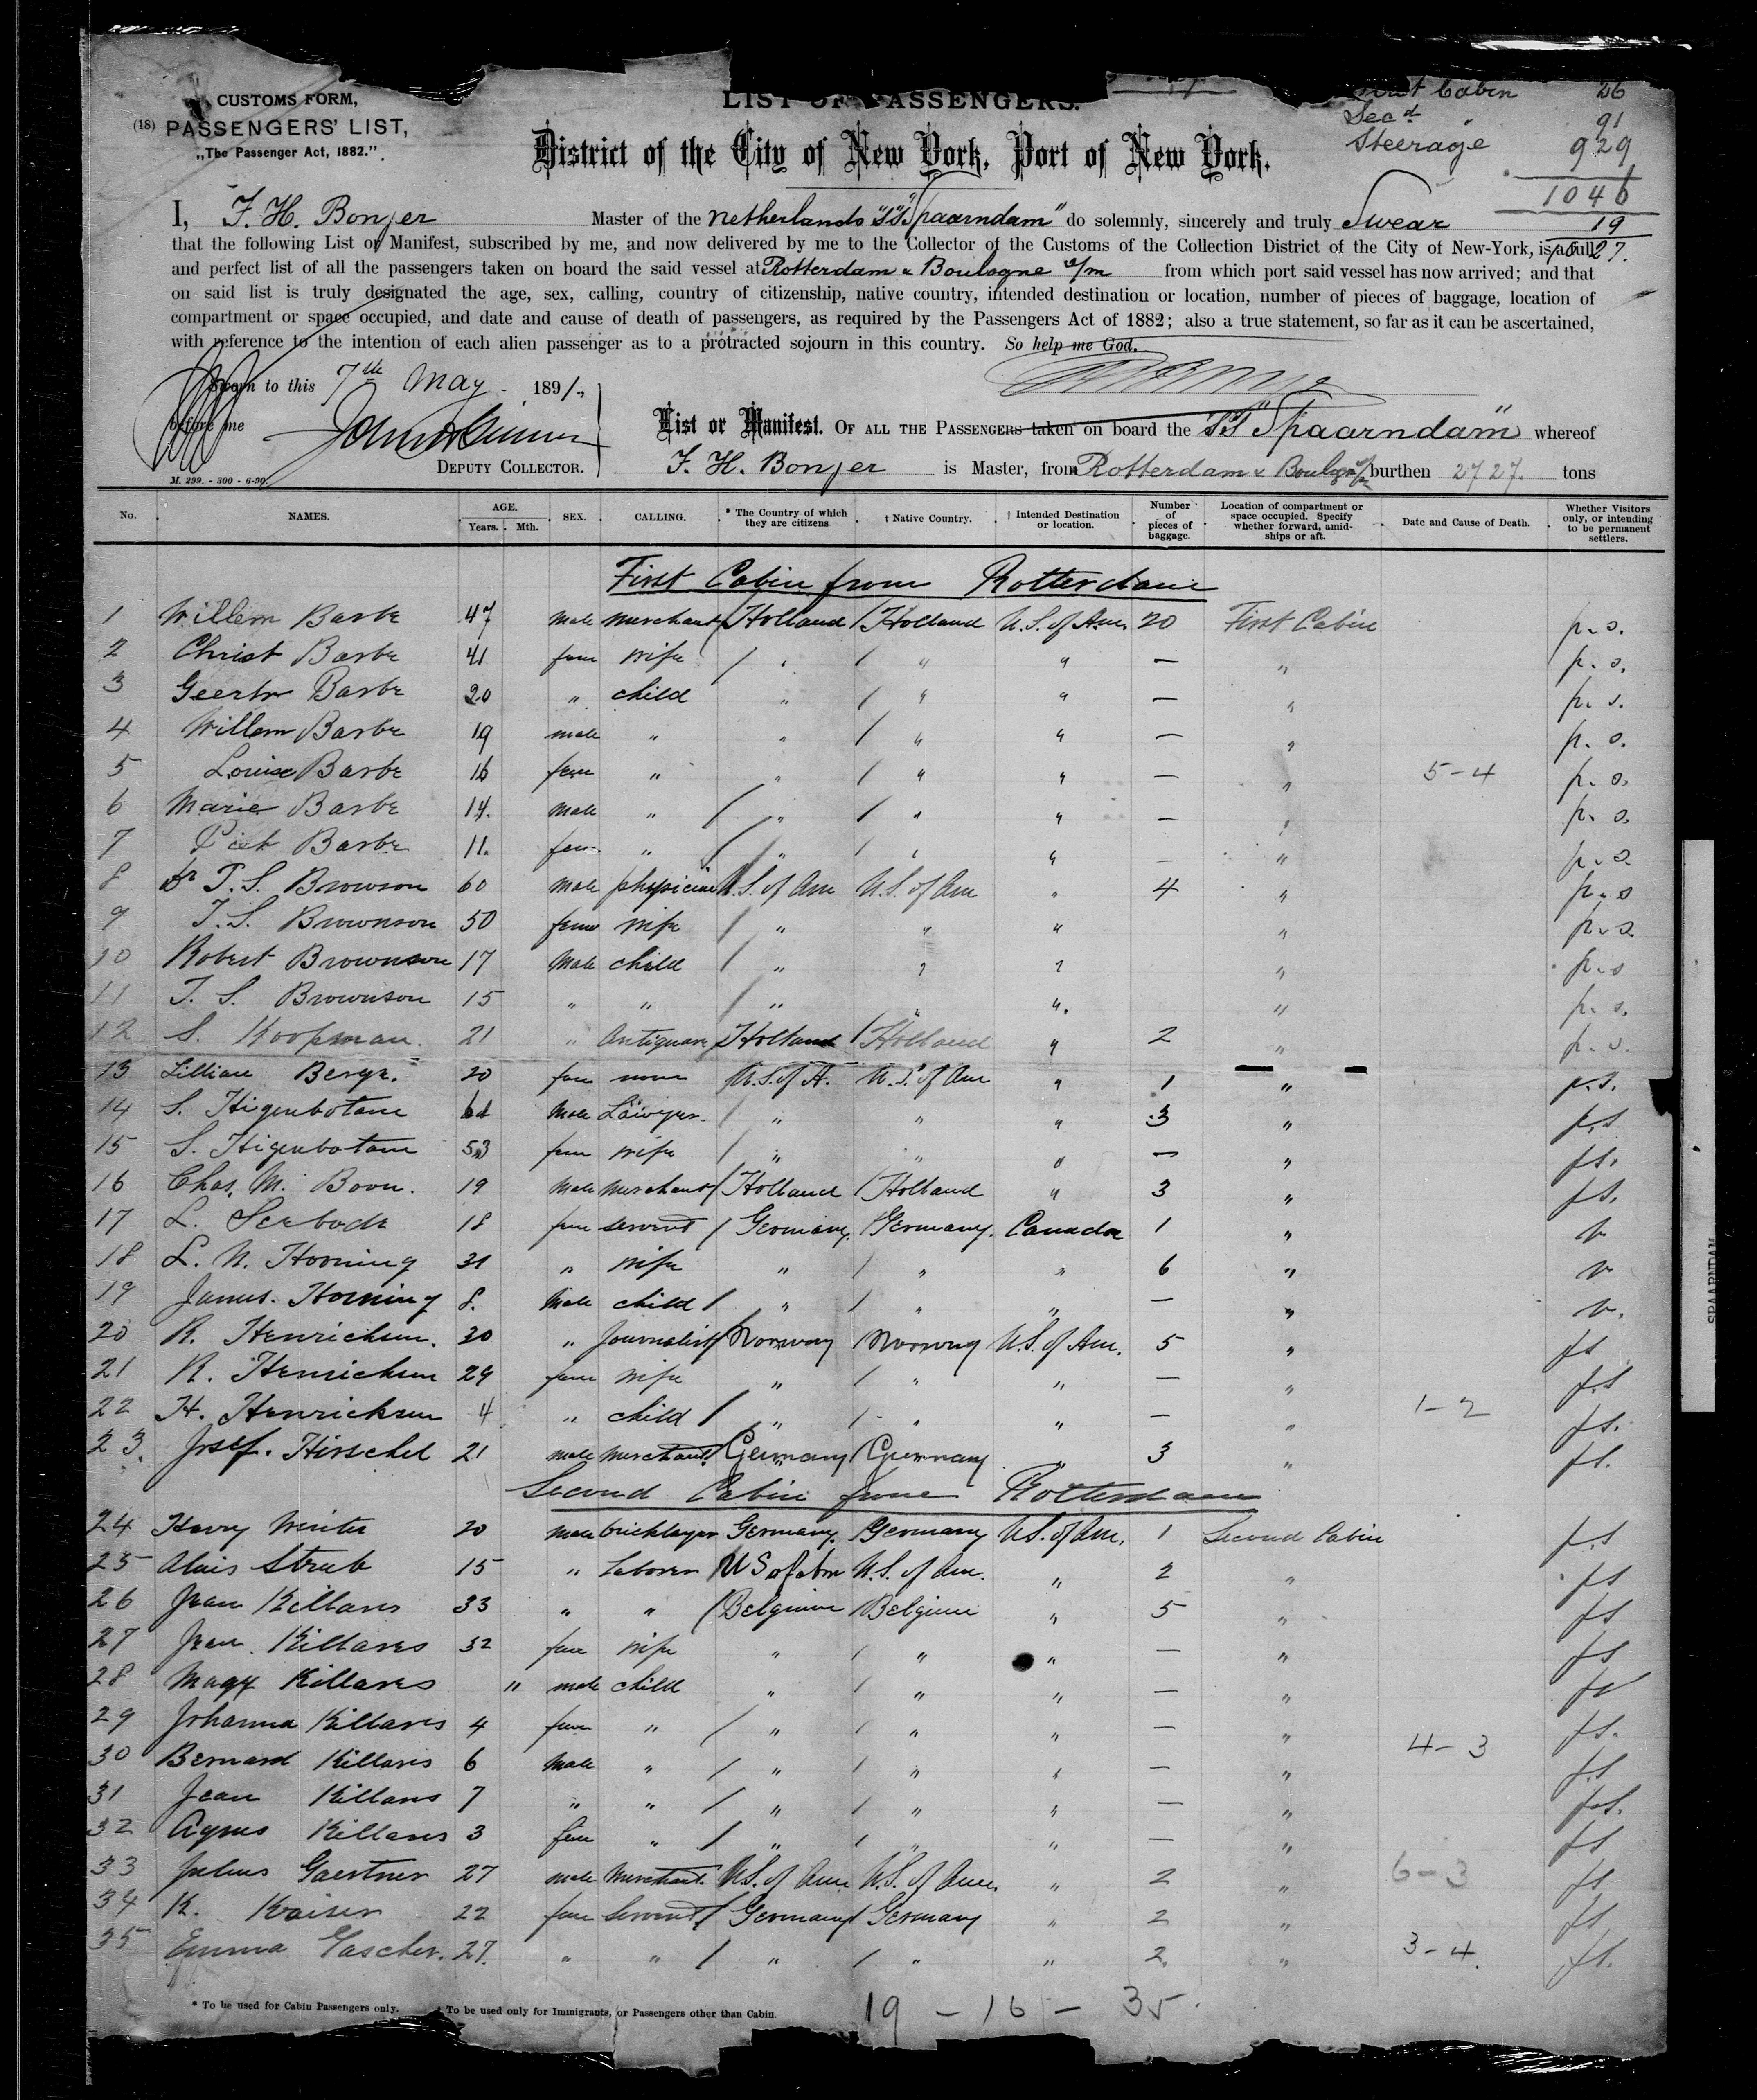 CUSTOMS FORM,
(18) PASSENGERS' LIST,
„The Passenger Act, 1882.".
LIST OF PASSENGERS.
District of the City of New York, Port of New York.
First Cabin 26
Secd " 91
Steerage 929
1046
19
1027.
I, F. H. Bonjer Master of the Netherlands "SS Spaarndam" do solemnly, sincerely and truly Swear
that the following List or Manifest, subscribed by me, and now delivered by me to the Collector of the Customs of the Collection District of the City of New-York, is a full
and perfect list of all the passengers taken on board the said vessel at Rotterdam & Boulogne s/m from which port said vessel has now arrived; and that
on said list is truly designated the age, sex, calling, country of citizenship, native country, intended destination or location, number of pieces of baggage, location of
compartment or space occupied, and date and cause of death of passengers, as required by the Passengers Act of 1882; also a true statement, so far as it can be ascertained,
with reference to the intention of each alien passenger as to a protracted sojourn in this country. So help me God.
Sworn to this 7th May 1891.
before me
DEPUTY COLLECTOR.
M. 299. - 300 - 6-90.
List or Manifest. OF ALL THE PASSENGERS taken on board the "SS Spaarndam" whereof
F. H. Bonjer is Master, from Rotterdam & Boulogne s/m burthen 2727. tons
No. NAMES. AGE. Years. Mth. SEX. CALLING. * The Country of which they are citizens † Native Country. † Intended Destination or location. Number of pieces of baggage. Location of compartment or space occupied. Specify whether forward, amidships or aft. Date and Cause of Death. Whether Visitors only, or intending to be permanent settlers.
First Cabin from Rotterdam
1 Willem Barbe 47 male merchant Holland Holland U.S. of Am. 20 First Cabin p. s.
2 Christ Barbe 41 fem wife " " " — " p. s.
3 Geertr Barbe 20 " child " " " — " p. s.
4 Willem Barbe 19 male " " " " — " p. s.
5 Louise Barbe 16 fem " " " " — " 5-4 p. s.
6 Marie Barbe 14. male " " " " — " p. s.
7 Piet Barbe 11. fem. " " " " — " p. s.
8 Dr T. S. Browson 60 male physician U.S. of Am U.S. of Am " 4 " p. s
9 T. S. Brownson 50 fem wife " " " " p. s.
10 Robert Brownson 17 Male child " " " " p. s
11 T. S. Brownson 15 " " " " " " p. s.
12 S. Koopman. 21 " Antiquare Holland Holland " 2 " p. s.
13 Lillian Berge. 20 fem none U.S. of A. U.S. of Am " 1 " p. s.
14 S. Higenbotam 61 Male Lawyer " " " 3 " p. s
15 S. Higenbotam 53 fem wife " " " — " p s.
16 Chas. M. Boon. 19 Male Merchant Holland Holland " 3 " p s.
17 L. Seebode 18 fem servent Germany. Germany. Canada 1 " v
18 L. N. Hooning 31 " wife " " " 6 " v
19 James. Horning 8. Male child " " " — " v.
20 R. Henrichsen. 30 " Journalist Norway Norway U.S. of Am. 5 " ps
21 R. Henrichsen 29 fem wife " " " — " p. s
22 H. Henricksen 4 " child " " " — " 1-2 p s.
23. Josef. Hirschel 21 male merchant Germany Germany " 3 " p s.
Second Cabin from Rotterdam
24 Harry Winter 20 male bricklayer Germany. Germany U.S. of Am. 1 Second Cabin p. s
25 Alois Strub 15 " Laborer US of Am U.S. of Am. " 2 " ps
26 Jean Killares 33 " " Belgium Belgium " 5 " ps
27 Jean Killares 32 fem wife " " " — " ps
28 Magy Killares " male child " " " — " ps
29 Johanna Killares 4 fem " " " " — " ps.
30 Bernard Killares 6 Male " " " " — " 4-3 p.s
31 Jean Killares 7 " " " " " — " p.s.
32 Agnes Killares 3 fem " " " " — " ps
33 Julius Gaertner 27 male merchant. U.S. of Am. U.S. of Am. " 2 " 6-3 ps
34 K. Kaiser 22 fem Servent Germany Germany " 2 " ps
35 Emma Gascher. 27. " " " " " 2. " 3-4. ps.
* To be used for Cabin Passengers only. † To be used only for Immigrants, or Passengers other than Cabin.
19 - 16 - 35
SPAARNDAM